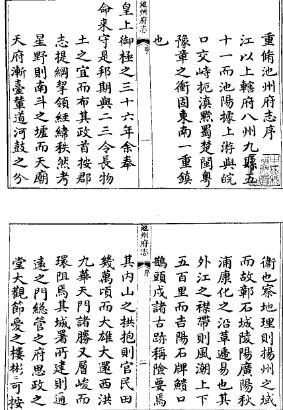 重脩池州府志序
江以上轄府八州九縣五
十一而池陽據上游與皖
口交峙扼滇黔蜀楚閩粵
豫章之衝固東南一重鎮
也
皇上御極之三十六年余奉
命來守是邦期與二三令長物
土之宜而布其政首按郡
志提綱挈領經緯秩然考
星野則南斗之墟而天廟
天府漸臺輦道河鼓之分
池州府志
序
一
衛也察地理則揚州之域
而故鄣石城陵陽廣陽秋
浦康化之沿革遞易也其
外江之襟帶則風潮上下
五百里而吉陽石牌鱭口
鵲頭戍諸古跡稱險要焉
其内山之拱抱則官民田
幾萬頃而大雄大還西洪
九華天門諸勝又層峻而
環阻焉其城署所建則通
遠之門總管之府思政之
堂大觀節愛之樓彬彬可按
池州府志
序